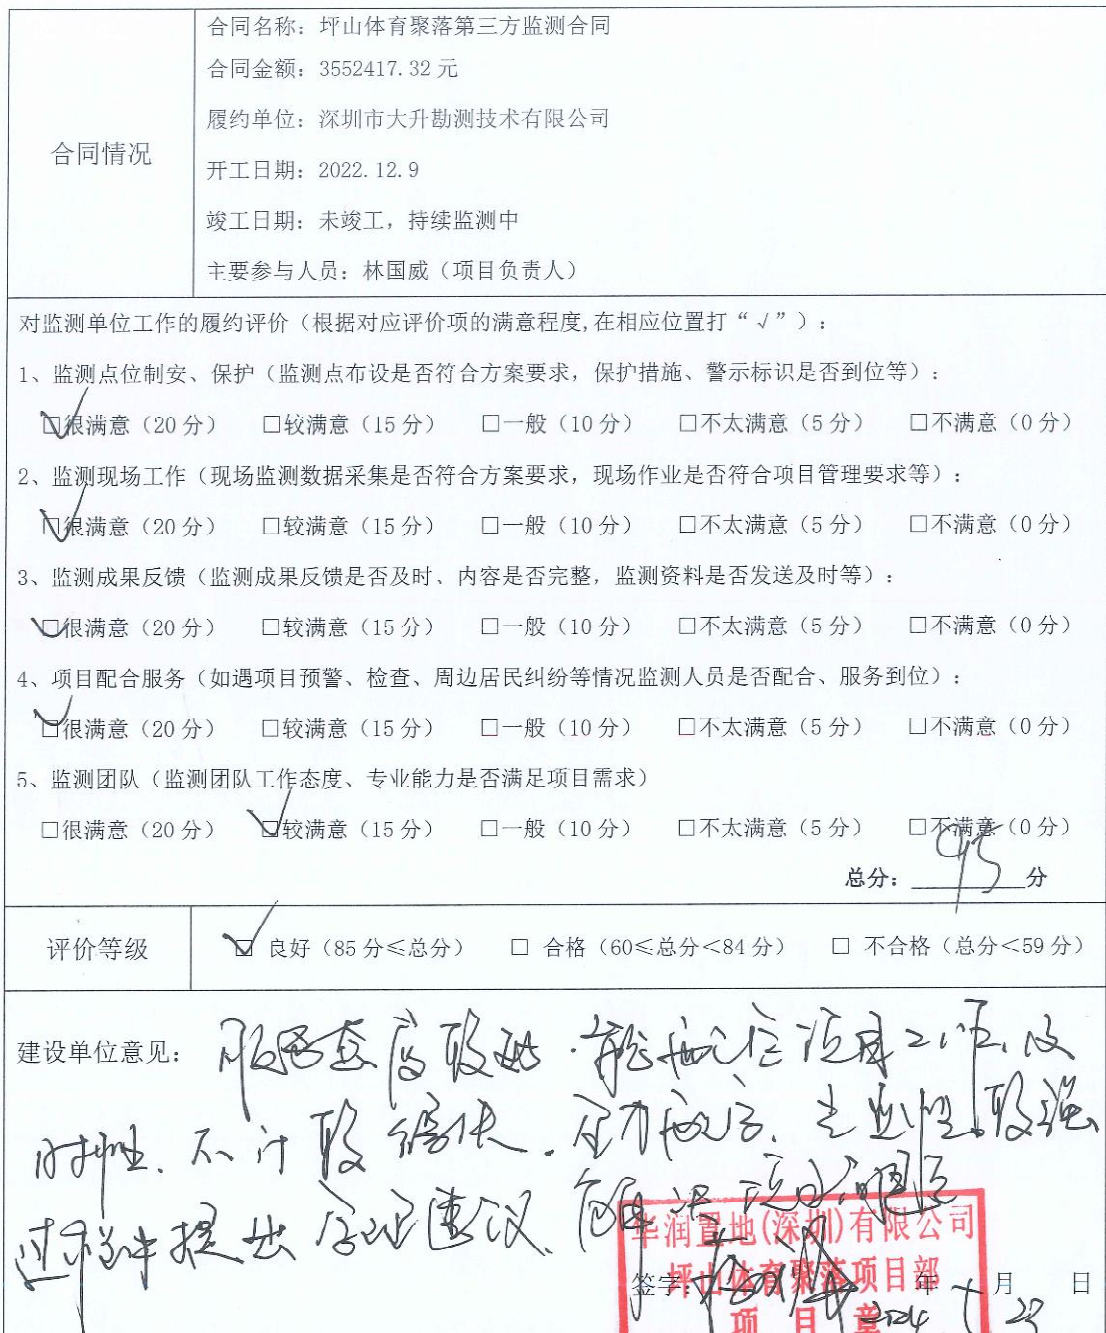 合同情况
合同名称：坪山体育聚落第三方监测合同
合同金额：3552417.32 元
履约单位：深圳市大升勘测技术有限公司
开工日期：2022.12.9
竣工日期：未竣工，持续监测中
主要参与人员：林国威（项目负责人）
对监测单位工作的履约评价（根据对应评价项的满意程度,在相应位置打“√”）：
1、监测点位制安、保护（监测点布设是否符合方案要求，保护措施、警示标识是否到位等）：
☑很满意（20 分） □较满意（15 分） □一般（10 分） □不太满意（5 分） □不满意（0 分）
2、监测现场工作（现场监测数据采集是否符合方案要求，现场作业是否符合项目管理要求等）：
☑很满意（20 分） □较满意（15 分） □一般（10 分） □不太满意（5 分） □不满意（0 分）
3、监测成果反馈（监测成果反馈是否及时、内容是否完整，监测资料是否发送及时等）：
☑很满意（20 分） □较满意（15 分） □一般（10 分） □不太满意（5 分） □不满意（0 分）
4、项目配合服务（如遇项目预警、检查、周边居民纠纷等情况监测人员是否配合、服务到位）：
☑很满意（20 分） □较满意（15 分） □一般（10 分） □不太满意（5 分） □不满意（0 分）
5、监测团队（监测团队工作态度、专业能力是否满足项目需求）
□很满意（20 分） ☑较满意（15 分） □一般（10 分） □不太满意（5 分） □不满意（0 分）
总分：95分
评价等级 ☑ 良好（85 分≤总分） □ 合格（60≤总分<84 分） □ 不合格（总分<59 分）
建设单位意见：服务态度较好，能配合项目工作，及
时性、不计较得失，全力配合，专业性较强
过程中提出合理建议、解决项目问题
华润置地(深圳)有限公司
坪山体育聚落项目部
项目章
签字： 2024 年 月 23 日